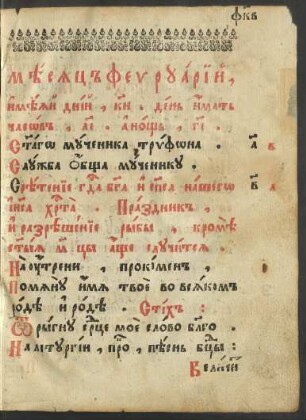 фк҃в
Мѣсяцъ феуруарїй,
имѣяй днїй, к҃и. день имать
часовъ, а҃і. а нощь, г҃і.
Ст҃агѡ мученика трѵфона. а҃ в
Служба общаѧ мученику.
Срѣтенїе гд҃а бг҃а и сп҃са нашегѡ в҃ а
іи҃са хр҃та. Праздникъ,
и разрѣшенїе рыбы, кромѣ
аще случится.
На оутрени, прокіменъ,
Помѧну имѧ твое во всѧкомъ
родѣ и родѣ. Стіхъ:
Ѿрыгну ср҃це мое слово бл҃го.
На літургіи, про, пѣснь бц҃ы:
Величи